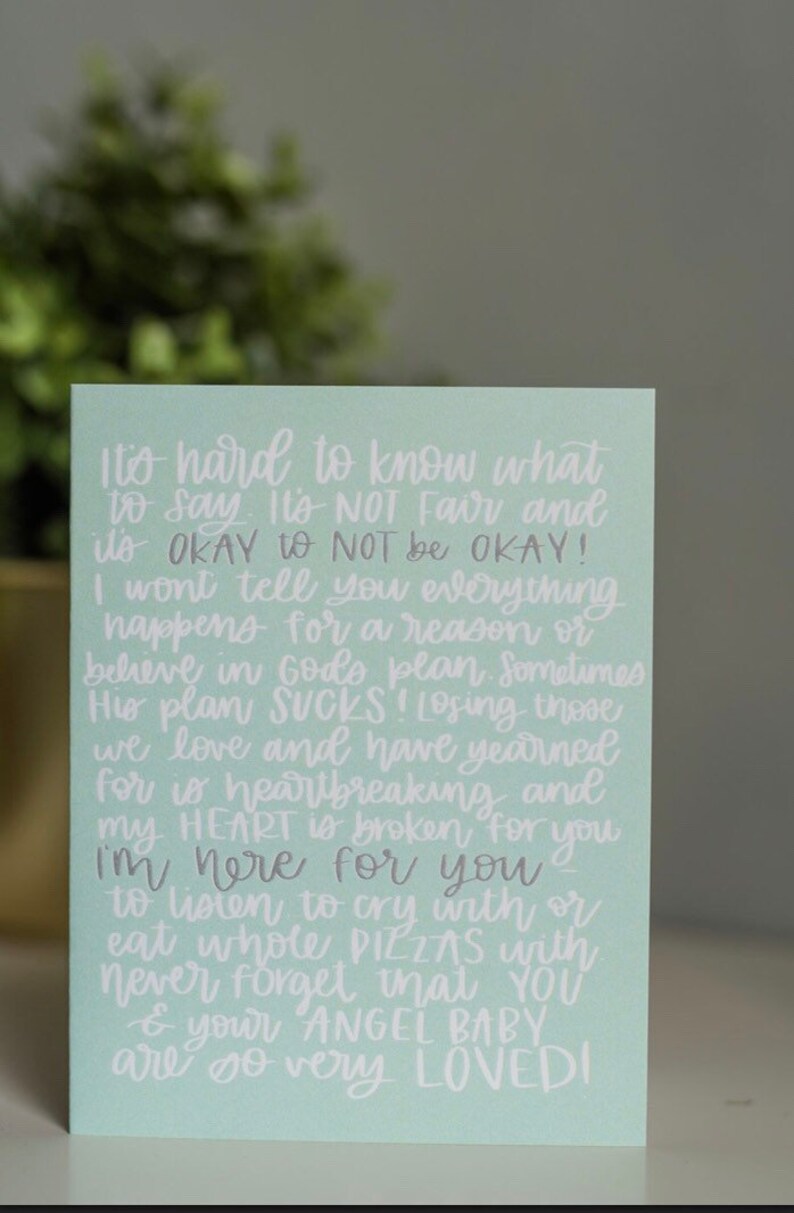 It's hard to know what
to say. It's NOT Fair and
it's OKAY to NOT be OKAY!
I wont tell you everything
happens for a reason or
believe in Gods plan. Sometimes
His plan SUCKS! Losing those
we love and have yearned
for is heartbreaking and
my HEART is broken for you
I'm here for you -
to listen to cry with or
eat whole PIZZAS with
never forget that YOU
& your ANGEL BABY
are so very LOVED!